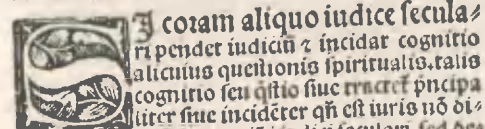 SI coram aliquo iudice secula⸗
ri pendet iudiciũ ⁊ incidat cognitio
alicuius questionis spiritualis.talis
cognitio seu q̃stio siue tractet̃ pncipa
liter siue incidẽter qñ est iuris nõ di⸗